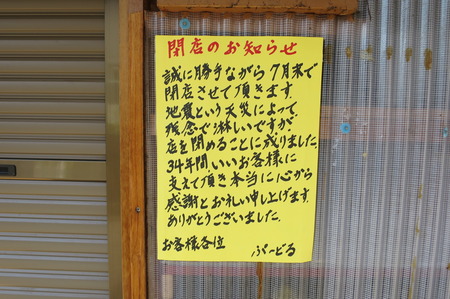 閉店のお知らせ
誠に勝手ながら7月末で
閉店させて頂きます
地震という天災によって
残念で淋しいですが
店を閉めることに成りました。
34年間いいお客様に
支えて頂き本当に心から
感謝とお礼い申し上げます。
ありがとうございました。
お客様各位 ぷーどる